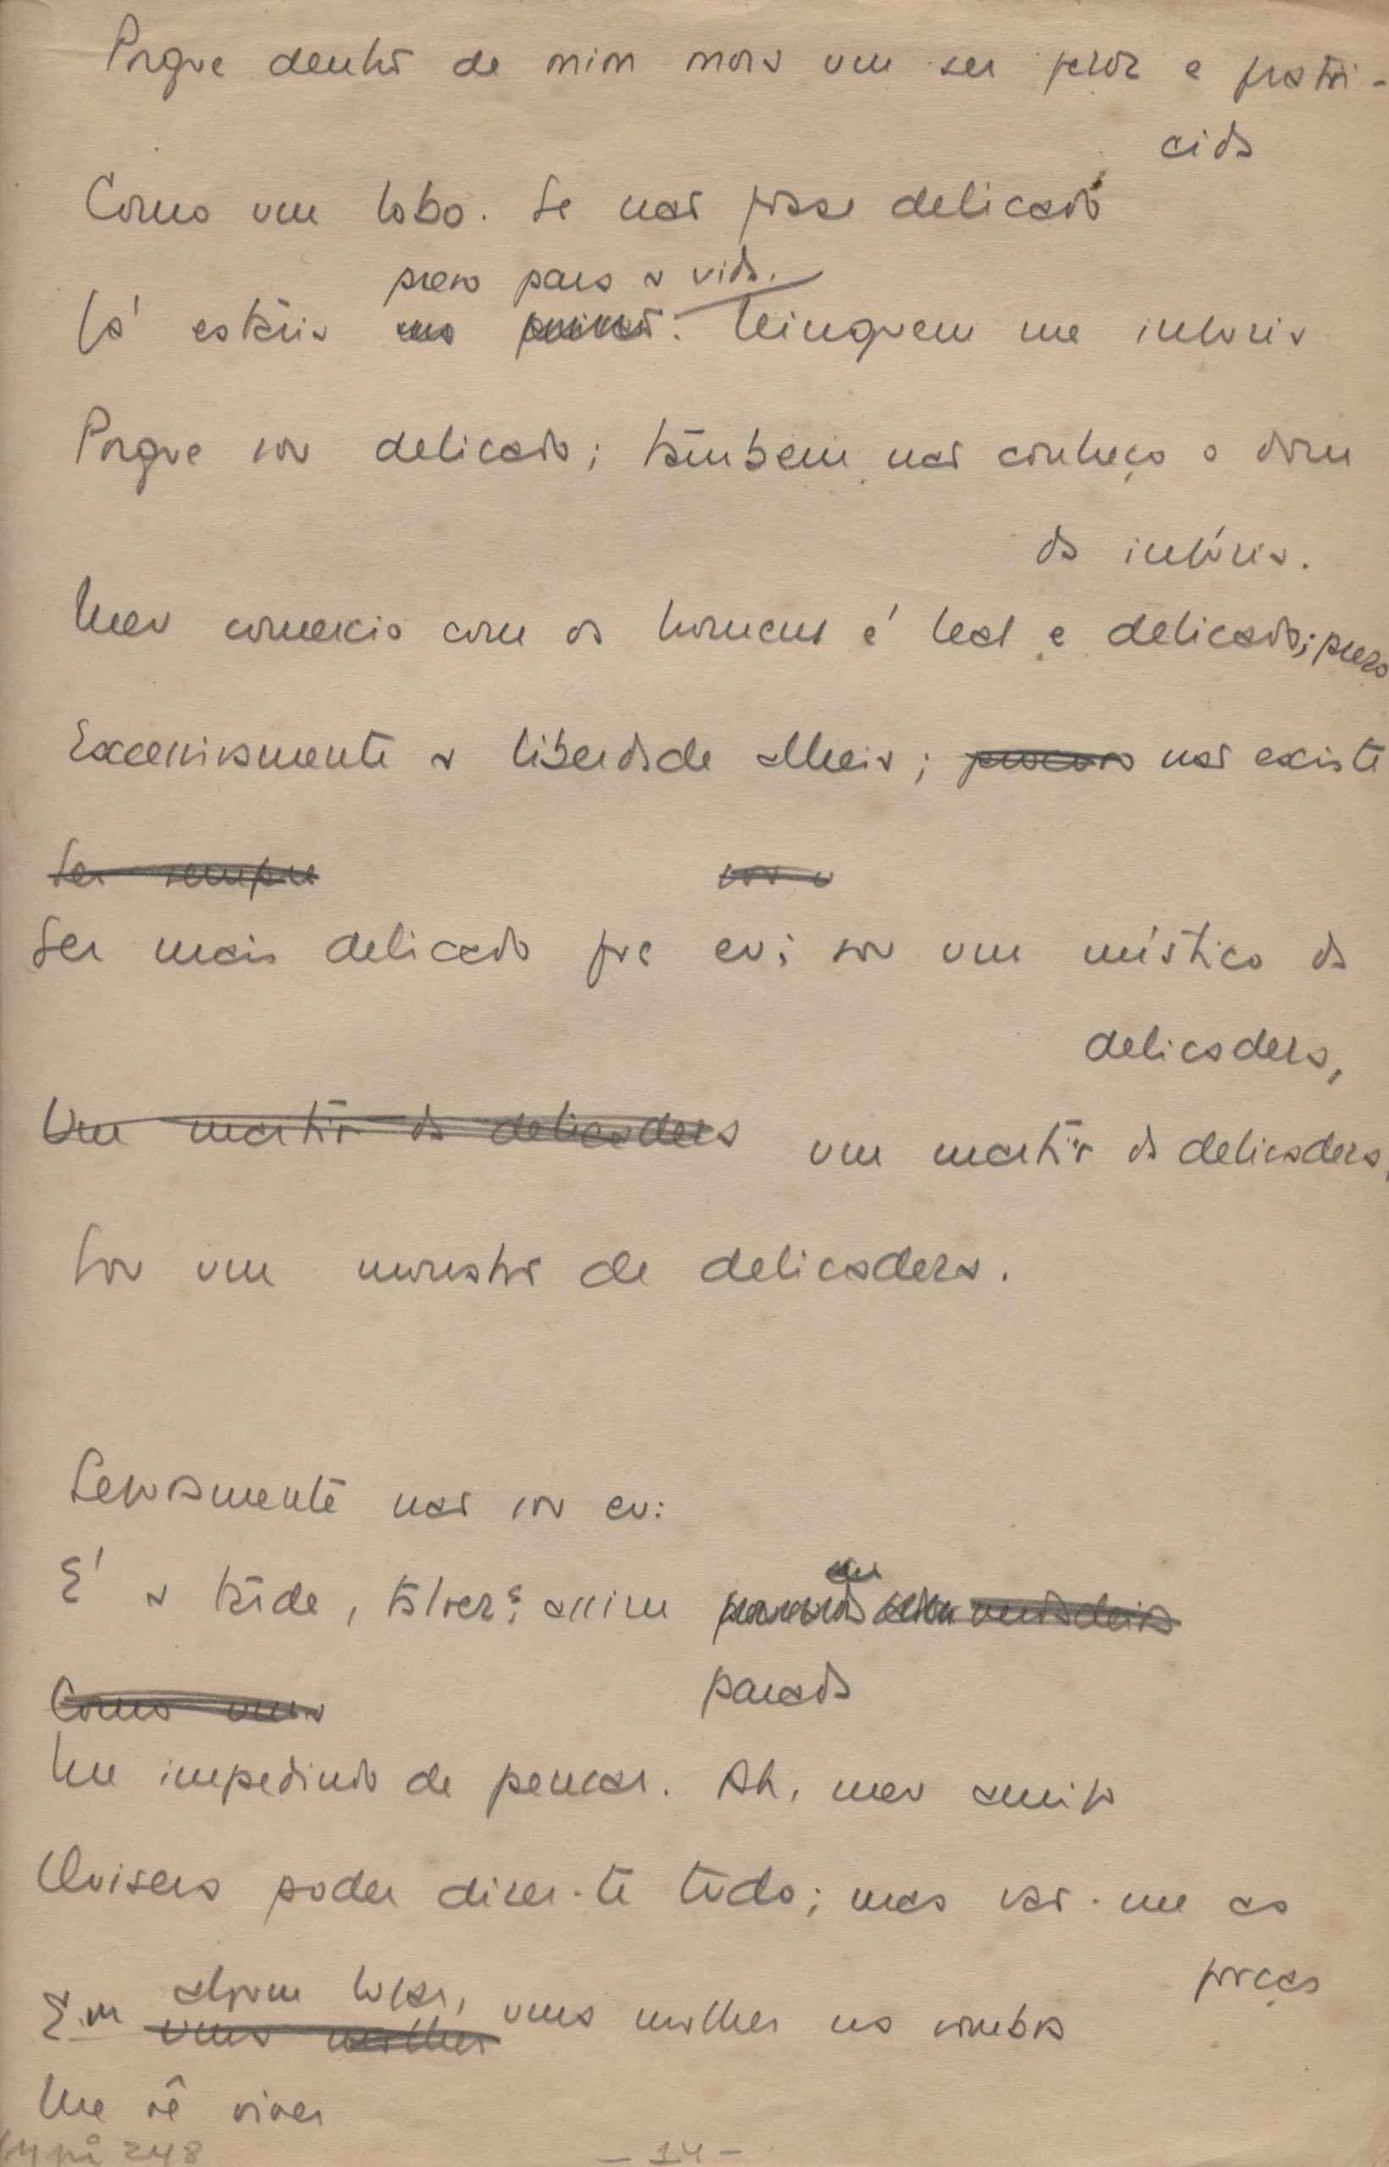 Porque dentro de mim mora um ser feroz e fratri-
cida
Como um lobo. Se não fosse delicado
preso para a vida.
Já estaria na prisão. Ninguem me injuria
Porque sou delicado; tambem não conheço o dom
da injúria.
Meu comercio com os homens é leal e delicado; prezo
Excessivamente a liberdade alheia; procuro não existe
Ser sempre
sou o
Ser mais delicado que eu; sou um místico da
delicadeza,
Um martir da delicadeza um martir da delicadeza,
Sou um monstro de delicadeza.
Seguramente não sou eu:
É a tarde, talvez, assim
parada
Como uma
Me impedindo de pensar. Ah, meu amigo
Quisera poder dizer-te tudo; mas vão-me as
forças
algum lugar,
Em uma mulher uma mulher na sombra
Me vê viver
248
- 14 -